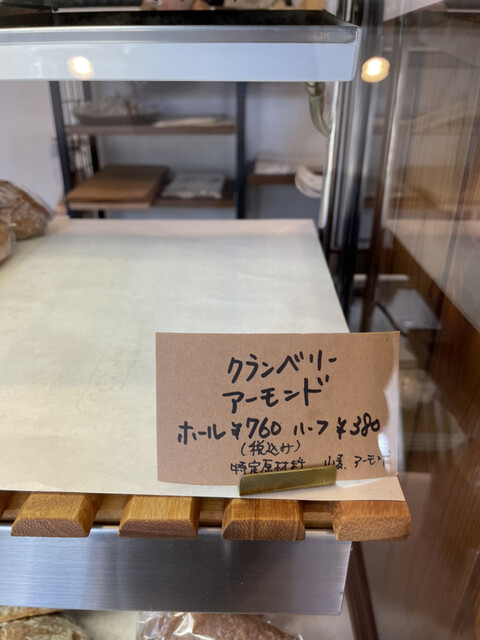 クランベリー
アーモンド
ホール ¥760 ハーフ ¥380
(税込み)
特定原材料 小麦、アーモンド